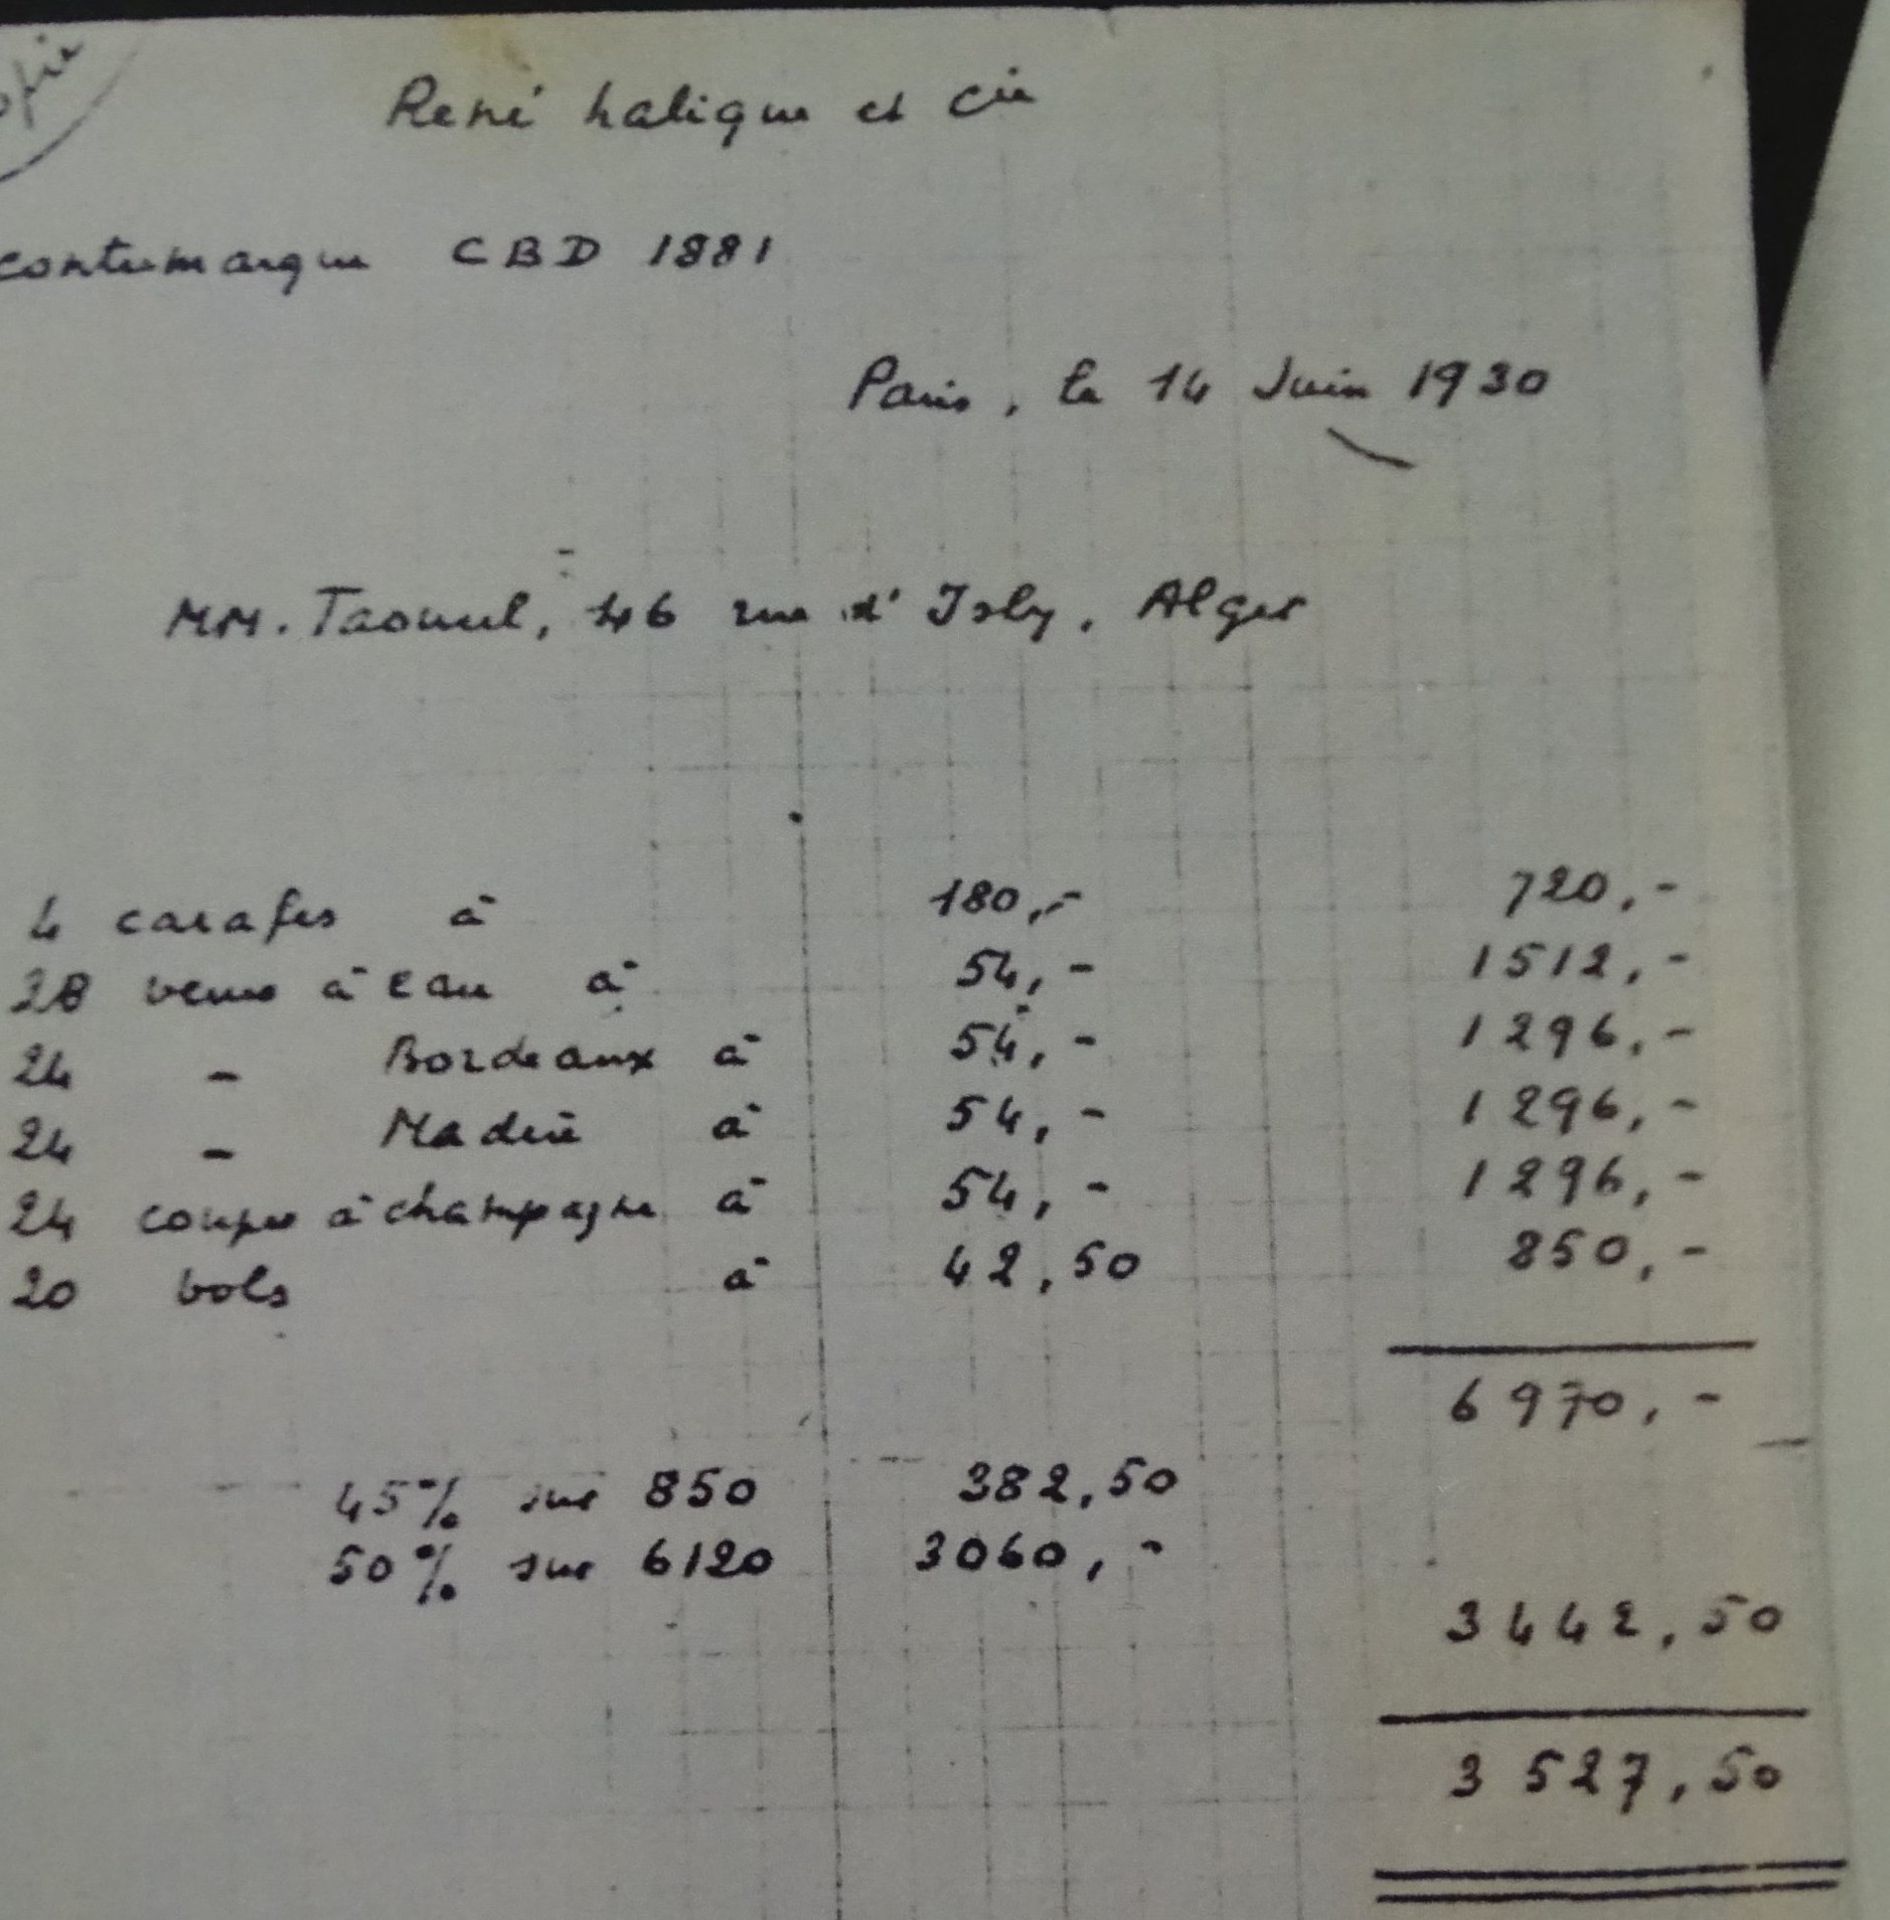 René Lalique et Cie
contremarque CBD 1881
Paris, le 14 Juin 1930
MM. Taourel, 46 rue d'Isly, Alger
4 carafes à 180,- 720,-
28 verres à eau à 54,- 1512,-
24 - Bordeaux à 54,- 1296,-
24 - Madère à 54,- 1296,-
24 coupes à champagne à 54,- 1296,-
20 bols à 42,50 850,-
6970,-
45% sur 850 382,50
50% sur 6120 3060,-
3442,50
3527,50